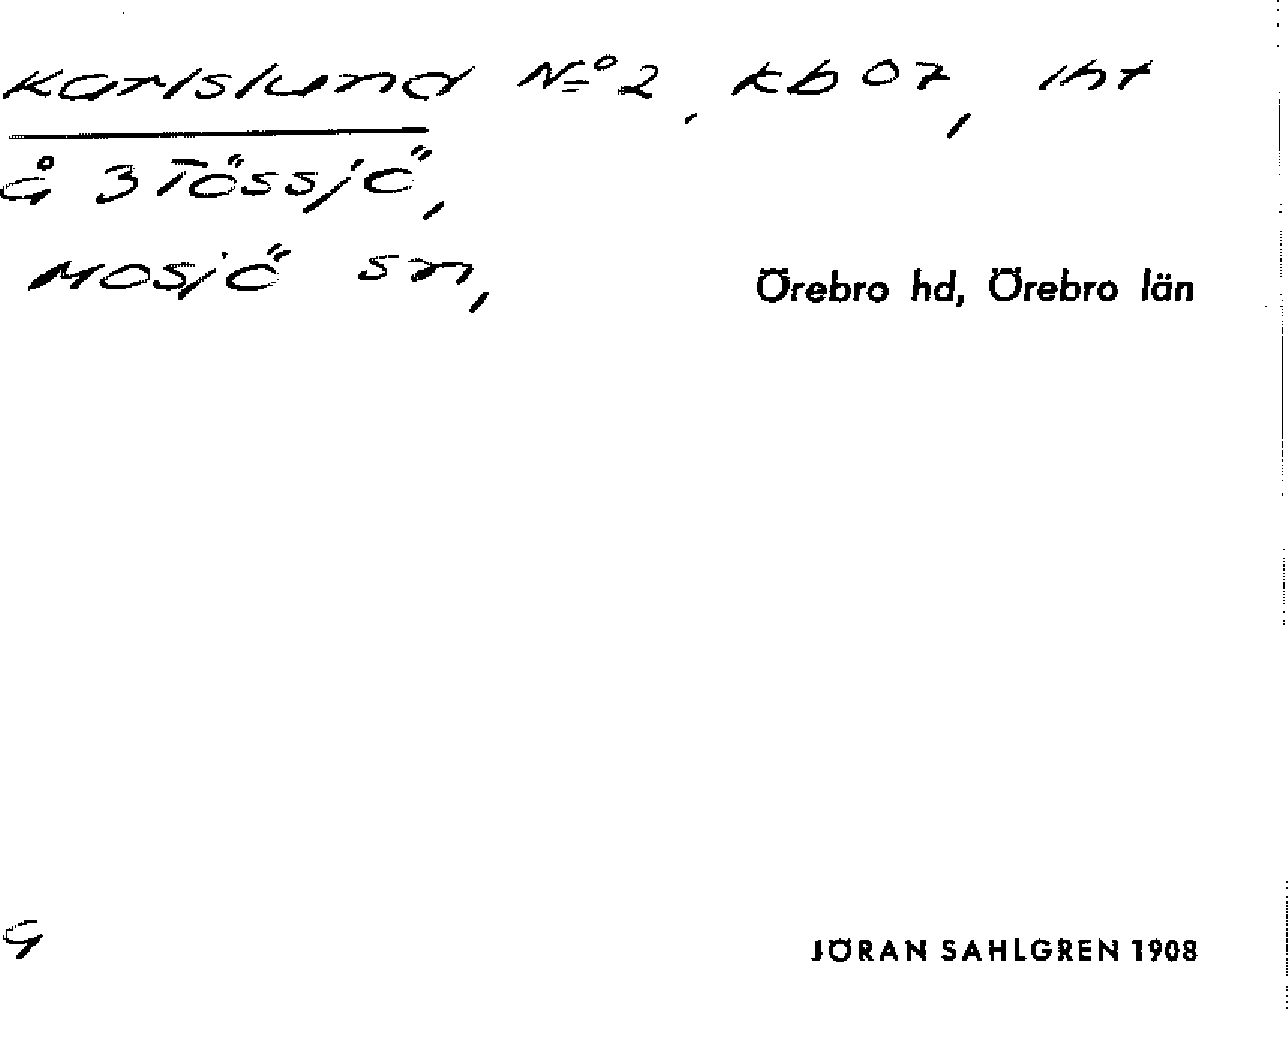 Karlslund No 2, kb 07, lht
å 3 Tössjö,
Mosjö sn,
Örebro hd, Örebro län
G
JÖRAN SAHLGREN 1908